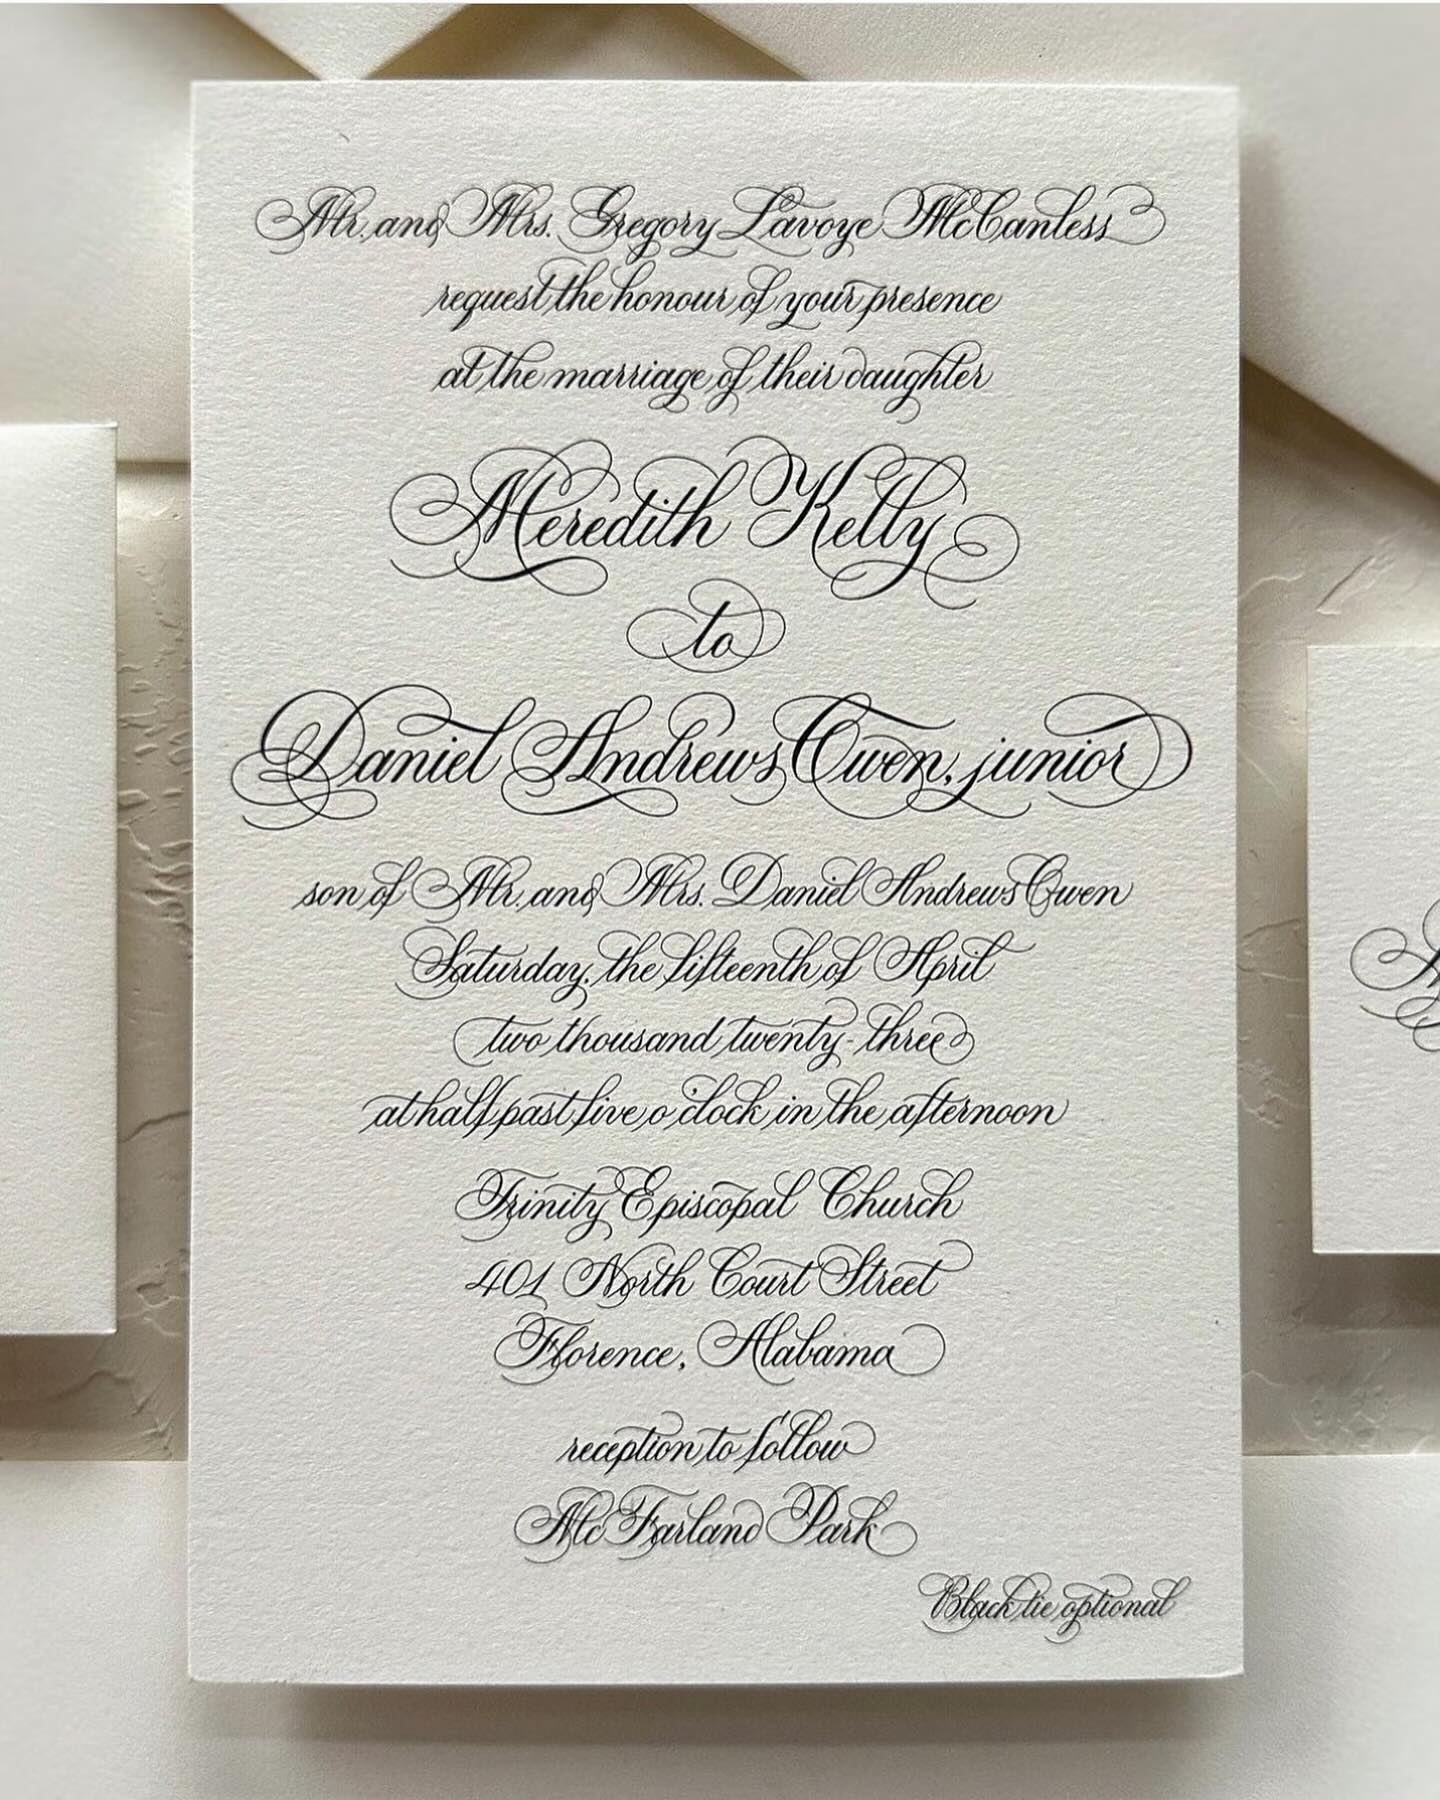 Mr. and Mrs. Gregory Lavoye McCanless
request the honour of your presence
at the marriage of their daughter
Meredith Kelly
to
Daniel Andrews Owen, junior
son of Mr. and Mrs. Daniel Andrews Owen
Saturday, the fifteenth of April
two thousand twenty-three
at half past five o'clock in the afternoon
Trinity Episcopal Church
401 North Court Street
Florence, Alabama
reception to follow
McFarland Park
Black tie optional